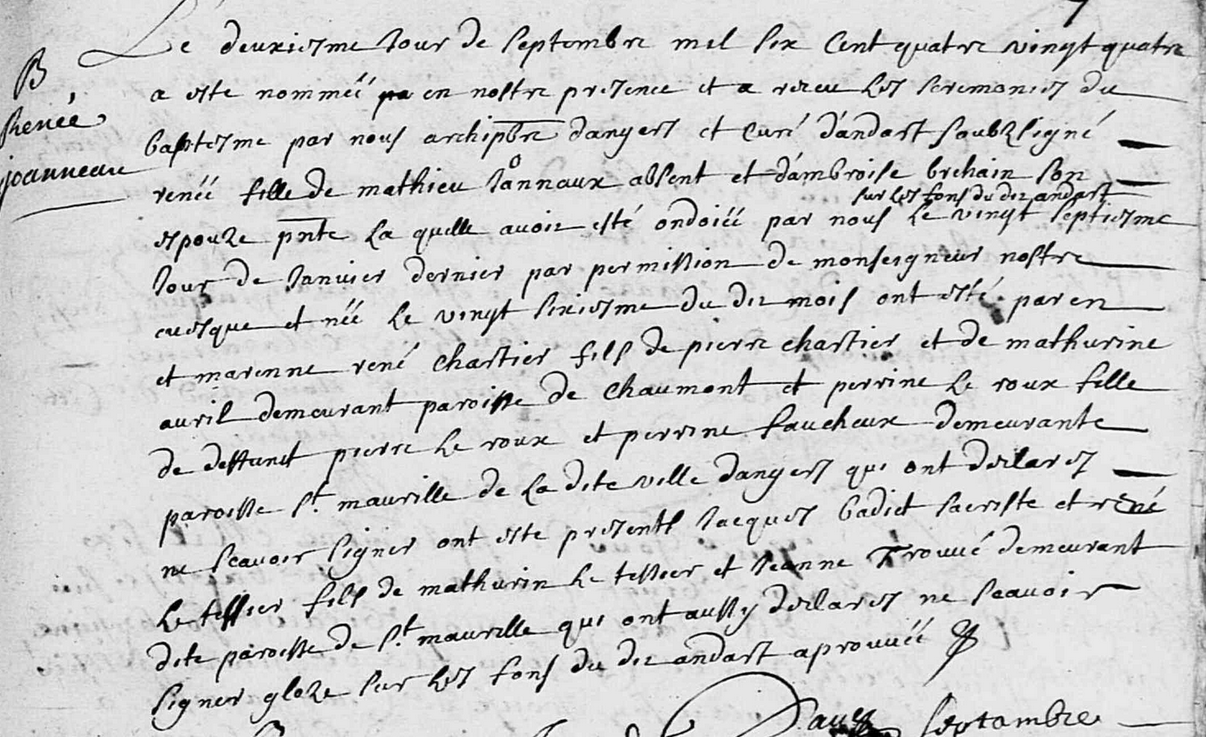 B
Renée
joanneau
Le deuxiesme Jour de septembre mil six cent quatre vingt quatre
a este nommée en nostre presence et a receu les seremonies du
baptesme par nous archipbre dangers et curé d'andart soubzsigné
renée fille de mathieu Joannaux absent et d'ambroise brehain son
sur les fons du dit andart
espouze pnte la quelle avoit esté ondoiée par nous le vingt septiesme
Jour de Janvier dernier par permission de monseigneur nostre
evesque et née le vingt sixiesme du dit mois ont esté paren
et marenne rené chartier fils de pierre chartier et de mathurine
avril demeurant paroisse de chaumont et perrine le roux fille
de deffunct pierre le roux et perrine faucheux demeurante
paroisse st maurille de la dite ville dangers qui ont declarez
ne scavoir signer ont este presents Jacques badict sacriste et rené
le tessier fils de mathurin le tessier et Jeanne Trouvé demeurant
dite paroisse de st maurille qui ont aussy declarez ne scavoir
signer gloze sur les fons du dit andart aprouvéé
septambre